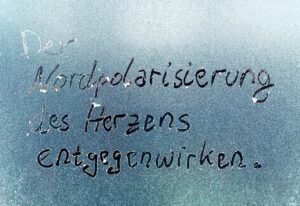 Der
Nordpolarisierung
des Herzens
entgegenwirken.